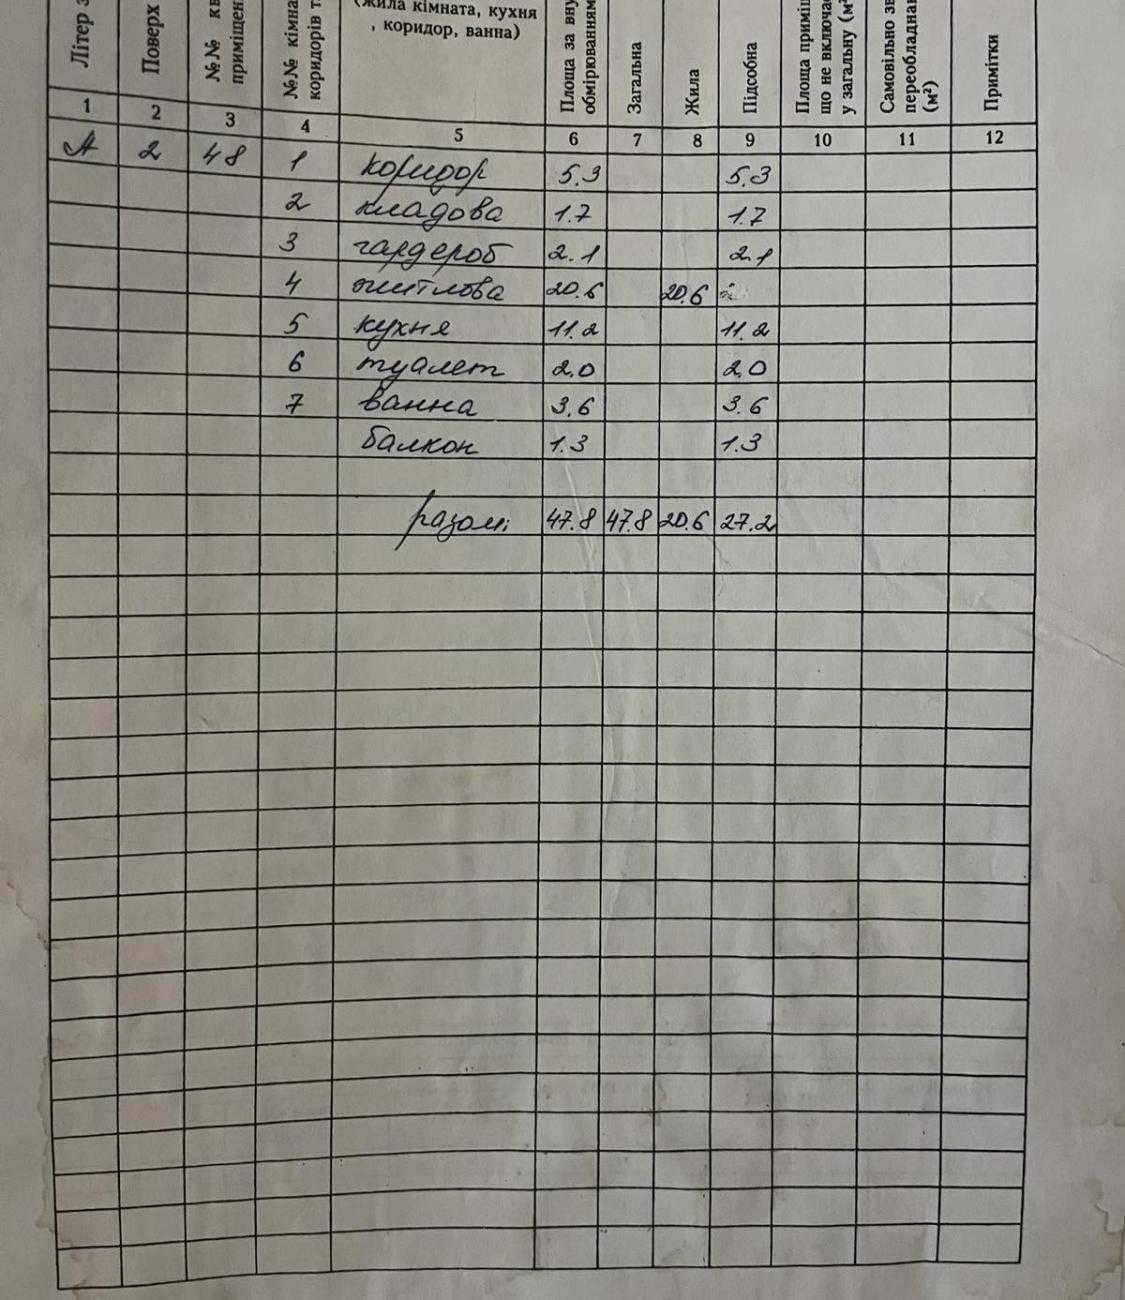 Літер з
Поверх
№№ кв
приміщен
№№ кімна
коридорів т
(жила кімната, кухня
, коридор, ванна)
Площа за вну
обмірюванням
Загальна
Жила
Підсобна
Площа приміщ
що не включа
у загальну (м²
Самовільно зв
переобладнан
(м²)
Примітки
1 2 3 4 5 6 7 8 9 10 11 12
А 2 48 1 коридор 5.3 5.3
2 кладова 1.7 1.7
3 гардероб 2.1 2.1
4 житлова 20.6 20.6
5 кухня 11.2 11.2
6 туалет 2.0 2.0
7 ванна 3.6 3.6
балкон 1.3 1.3
разом: 47.8 47.8 20.6 27.2